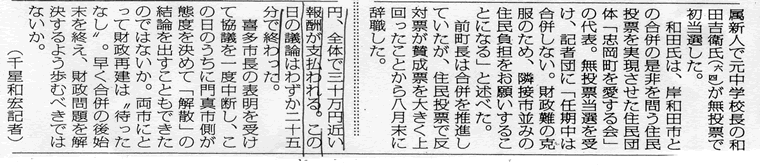 属新人で元中学校長の和
田吉衛氏(六四)が無投票で
初当選した。
和田氏は、岸和田市と
の合併の是非を問う住民
投票を実現させた住民団
体「忠岡町を愛する会」
の代表。無投票当選を受
け、記者団に「任期中は
合併しない。財政難の克
服のため、隣接市並みの
住民負担をお願いするこ
とになる」と述べた。
前町長は合併を推進し
ていたが、住民投票で反
対票が賛成票を大きく上
回ったことから八月末に
辞職した。
円、全体で三十万円近い
報酬が支払われる。この
日の議論はわずか二十五
分で終わった。
喜多市長の表明を受け
て協議を一度中断し、こ
の日のうちに門真市側が
態度を決めて「解散」の
結論を出すこともできた
のではないか。両市にと
って財政再建は〝待った
なし〟。早く合併の後始
末を終え、財政問題を解
決するよう歩むべきでは
ないか。
(千星和宏記者)